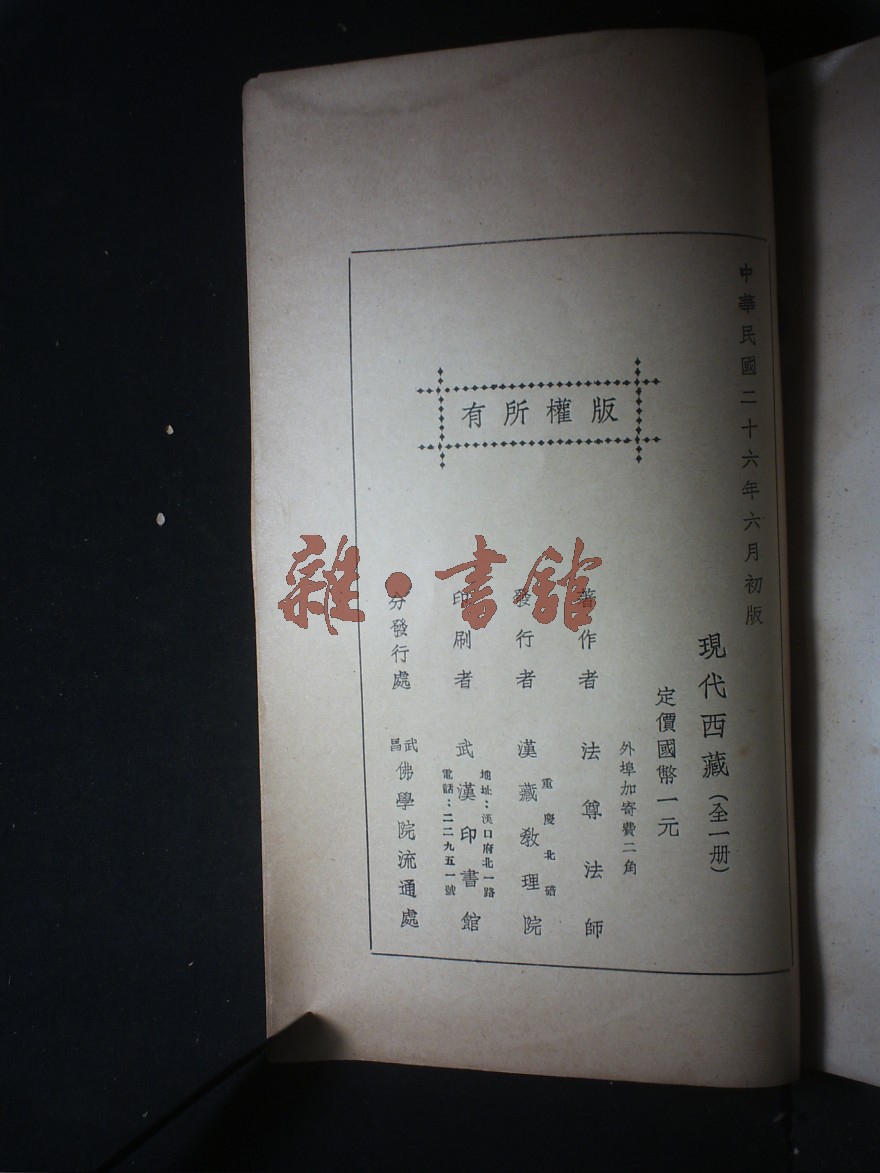 中華民國二十六年六月初版
現代西藏（全一册）
定價國幣一元
外埠加寄費二角
版權所有
著作者 法尊法師
發行者 重慶北碚 漢藏教理院
印刷者 武漢印書館
地址：漢口府北一路
電話：二二九五一號
分發行處 武昌 佛學院流通處
雜·書館